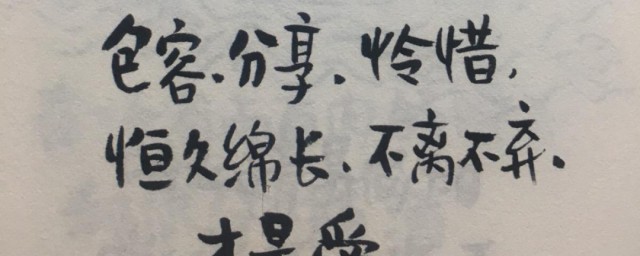 包容、分享、怜惜，
恒久绵长、不离不弃、
才是爱